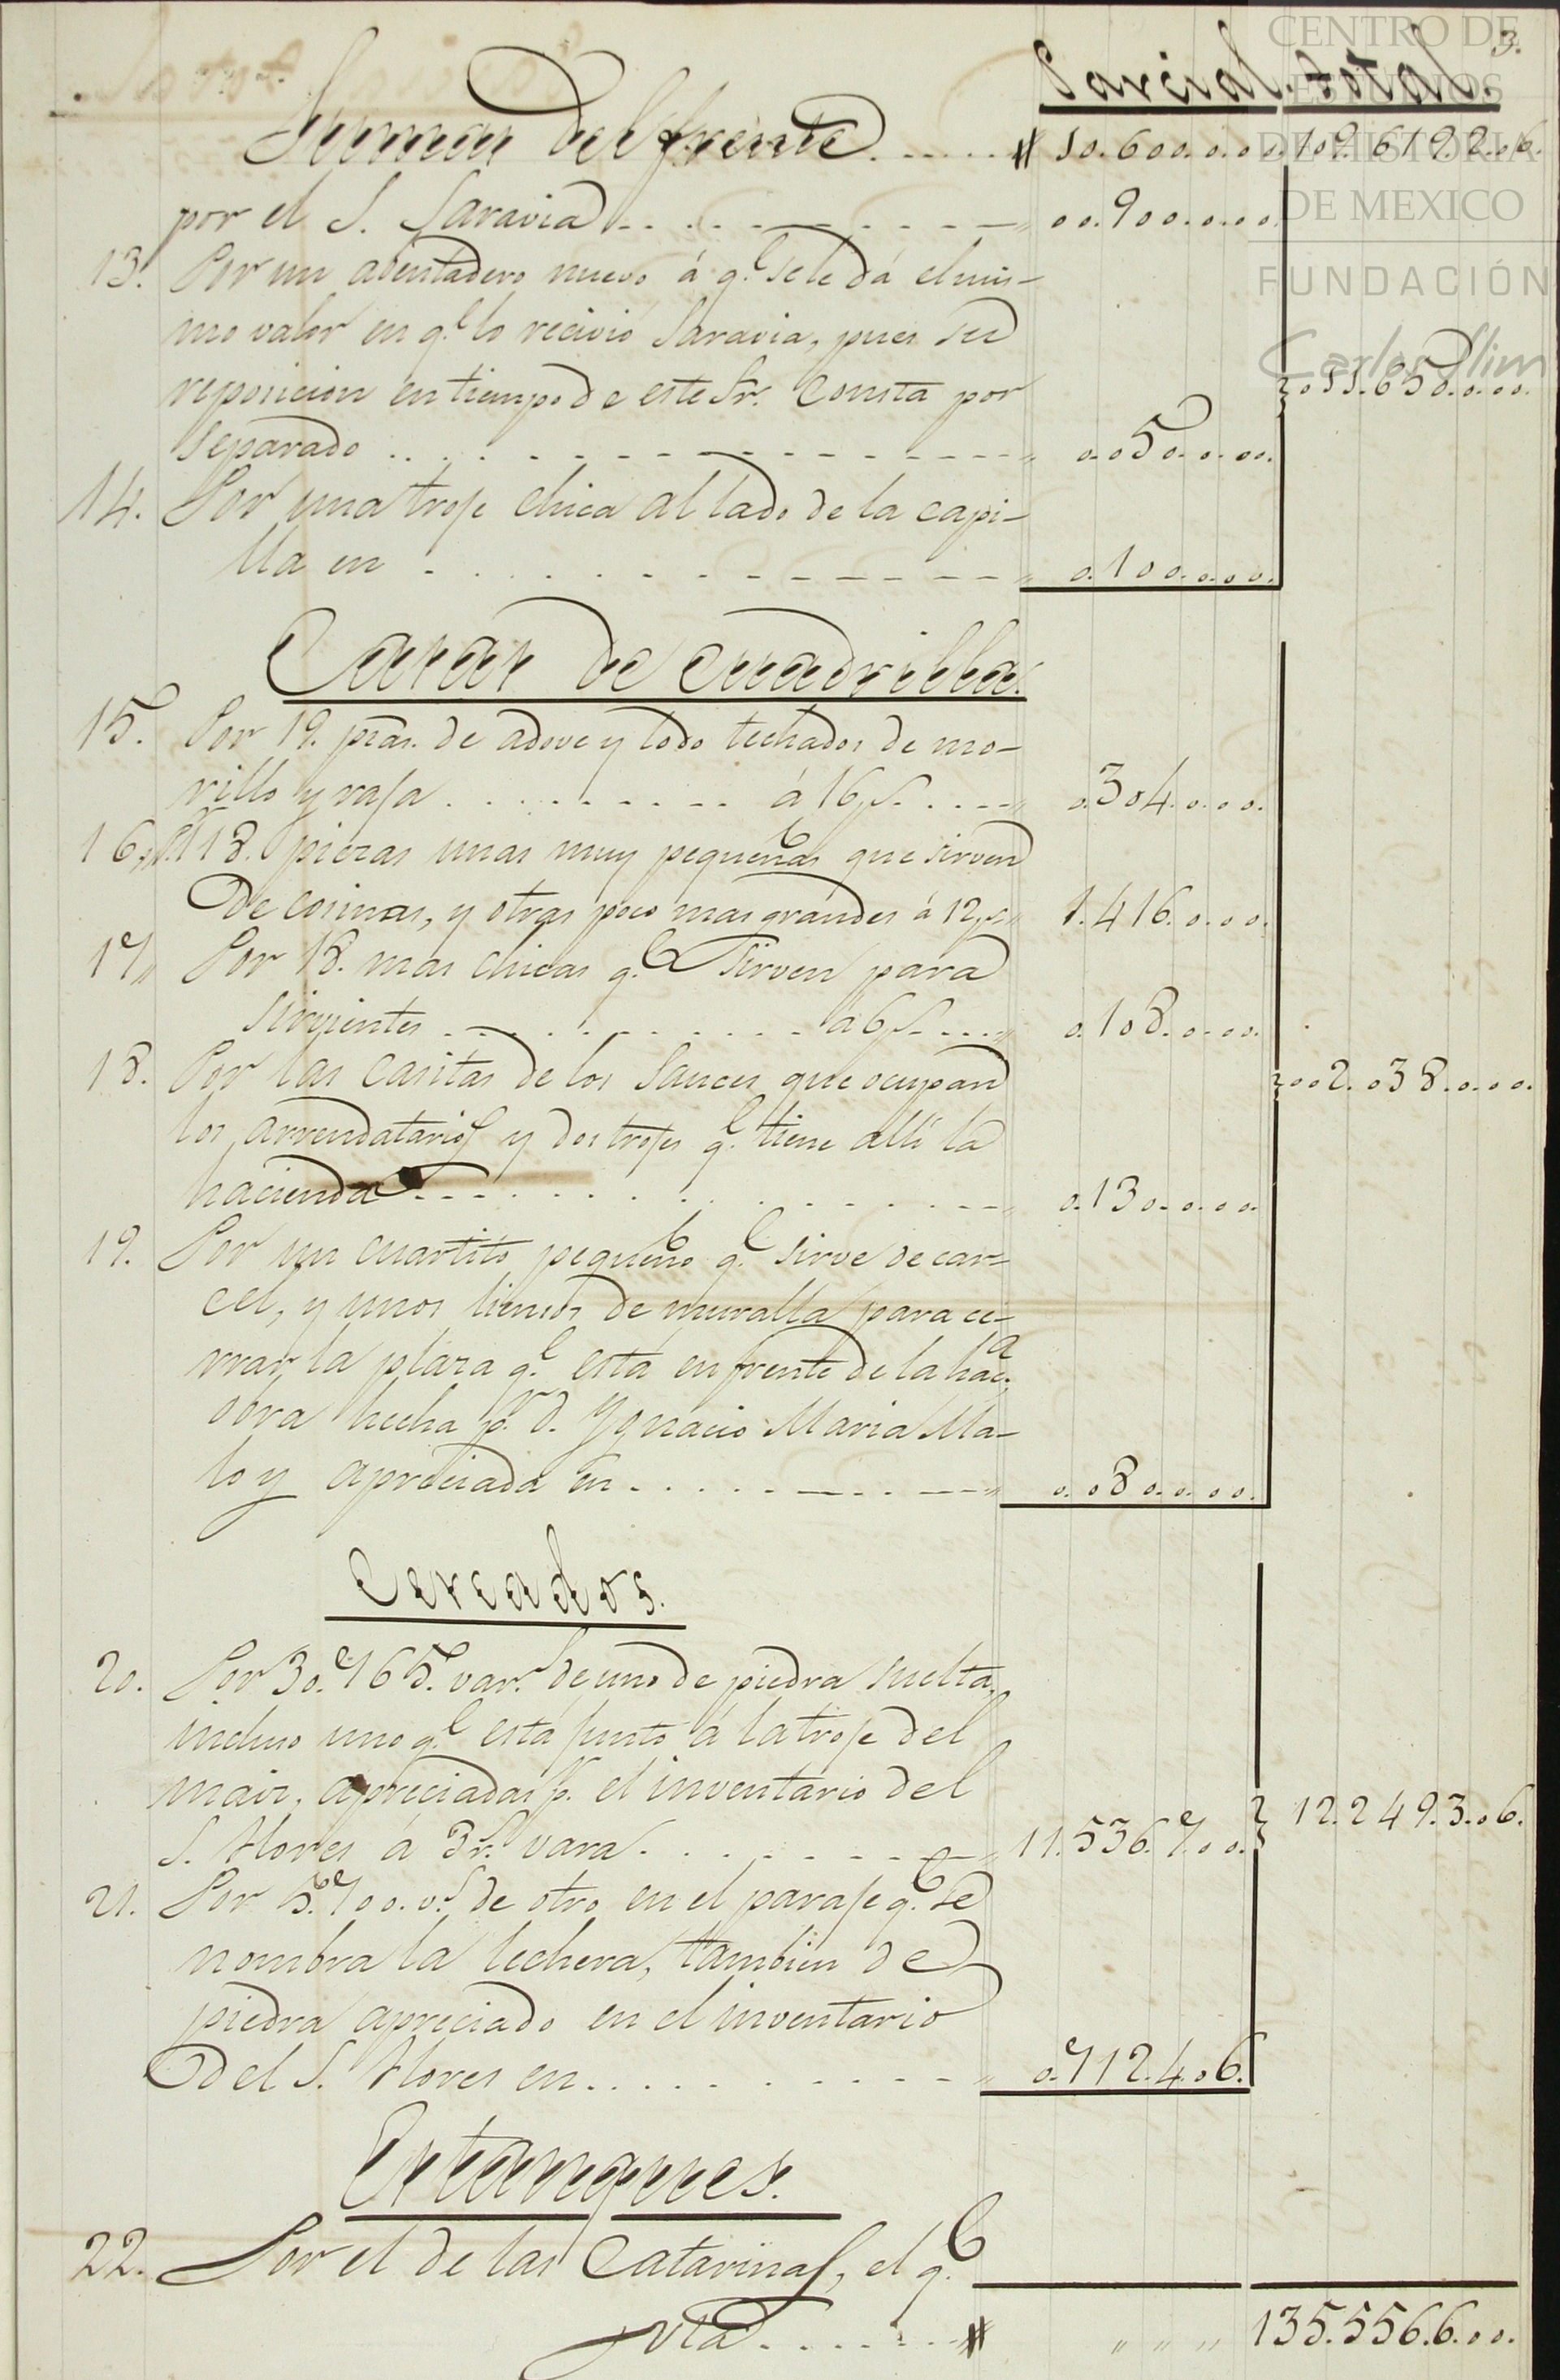 CENTRO DE
ESTUDIOS
DE HISTORIA
DE MEXICO
FUNDACIÓN
Carlos Slim
3.
Parcial. total.
Sumas del frente. . . . . . # 10.600.0.00. 109.619.2.06.
por el S. Saravia . . . . . . . . 00.900.0.00.
13. Por un abentadero nuevo á q.e se le dá el mis-
mo valor en q.e lo recivió Saravia, pues su
reposicion en tiempo de este Sr. consta por
separado . . . . . . . . . . 0.050.0.00. 011.650.0.00.
14. Por una troje chica al lado de la capi-
lla en . . . . . . . . . . 0.100.0.00.
Casas de cuadrilla.
15. Por 19. pzas. de adove y lodo techados de mo-
rillo y raja . . . . . . . . á 16 ps. . . . 0.304.0.00.
16,, Pr. 118. piezas unas muy pequeñas que sirven
de cosinas, y otras poco mas grandes á 12 ps. 1.416.0.00.
17,, Por 18. mas chicas q.e sirven para
sirvientes . . . . . . . . á 6 ps. . . . 0.108.0.00.
18. Por las casitas de los Sauces que ocupan 002.038.0.00.
los arrendatarios y dos trojes q.e tiene allí la
hacienda . . . . . . . . . . 0.130.0.00.
19. Por un cuartito pequeño q.e sirve de car-
cel, y unos lienzos de muralla para ce-
rrar la plaza q.e está enfrente de la hac.a
obra hecha p.r D. Ygnacio Maria Ma-
lo y apreciada en . . . . . . . . 0.080.0.00.
Cercados.
20. Por 30.765. var.s de uno de piedra suelta
incluso uno q.e está junto á la troje del
maiz, apreciadas p.r el inventario del
S. Flores á 3 r.s vara . . . . . . . . 11.536.7.00. 12.249.3.06.
21. Por 5.700. v.s de otro en el paraje q.e se
nombra la lechera, tambien de
piedra apreciado en el inventario
del S. Flores en . . . . . . . . . . 0.712.4.06.
Estanques.
22. Por el de las Catarinas, el q.e
vta. . . . . . . # ,, ,, ,, 135.556.6.00.